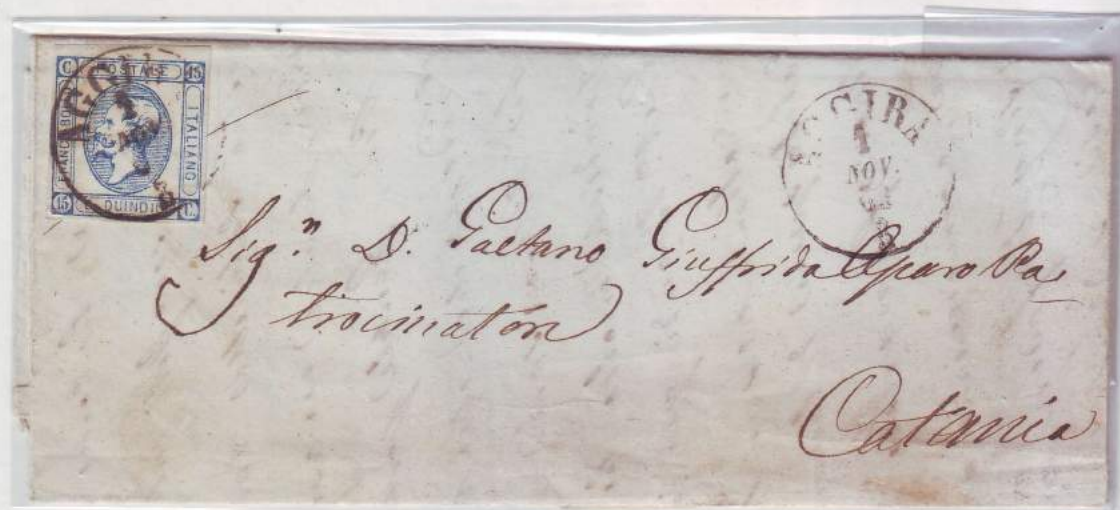 C POSTALE 15
FRANCO BOL
ITALIANO
15 QUINDIC C
AGGIRA
1
NOV.
Sig.n D. Gaetano Giuffrida Aparo Pa-
trocinatore
Catania